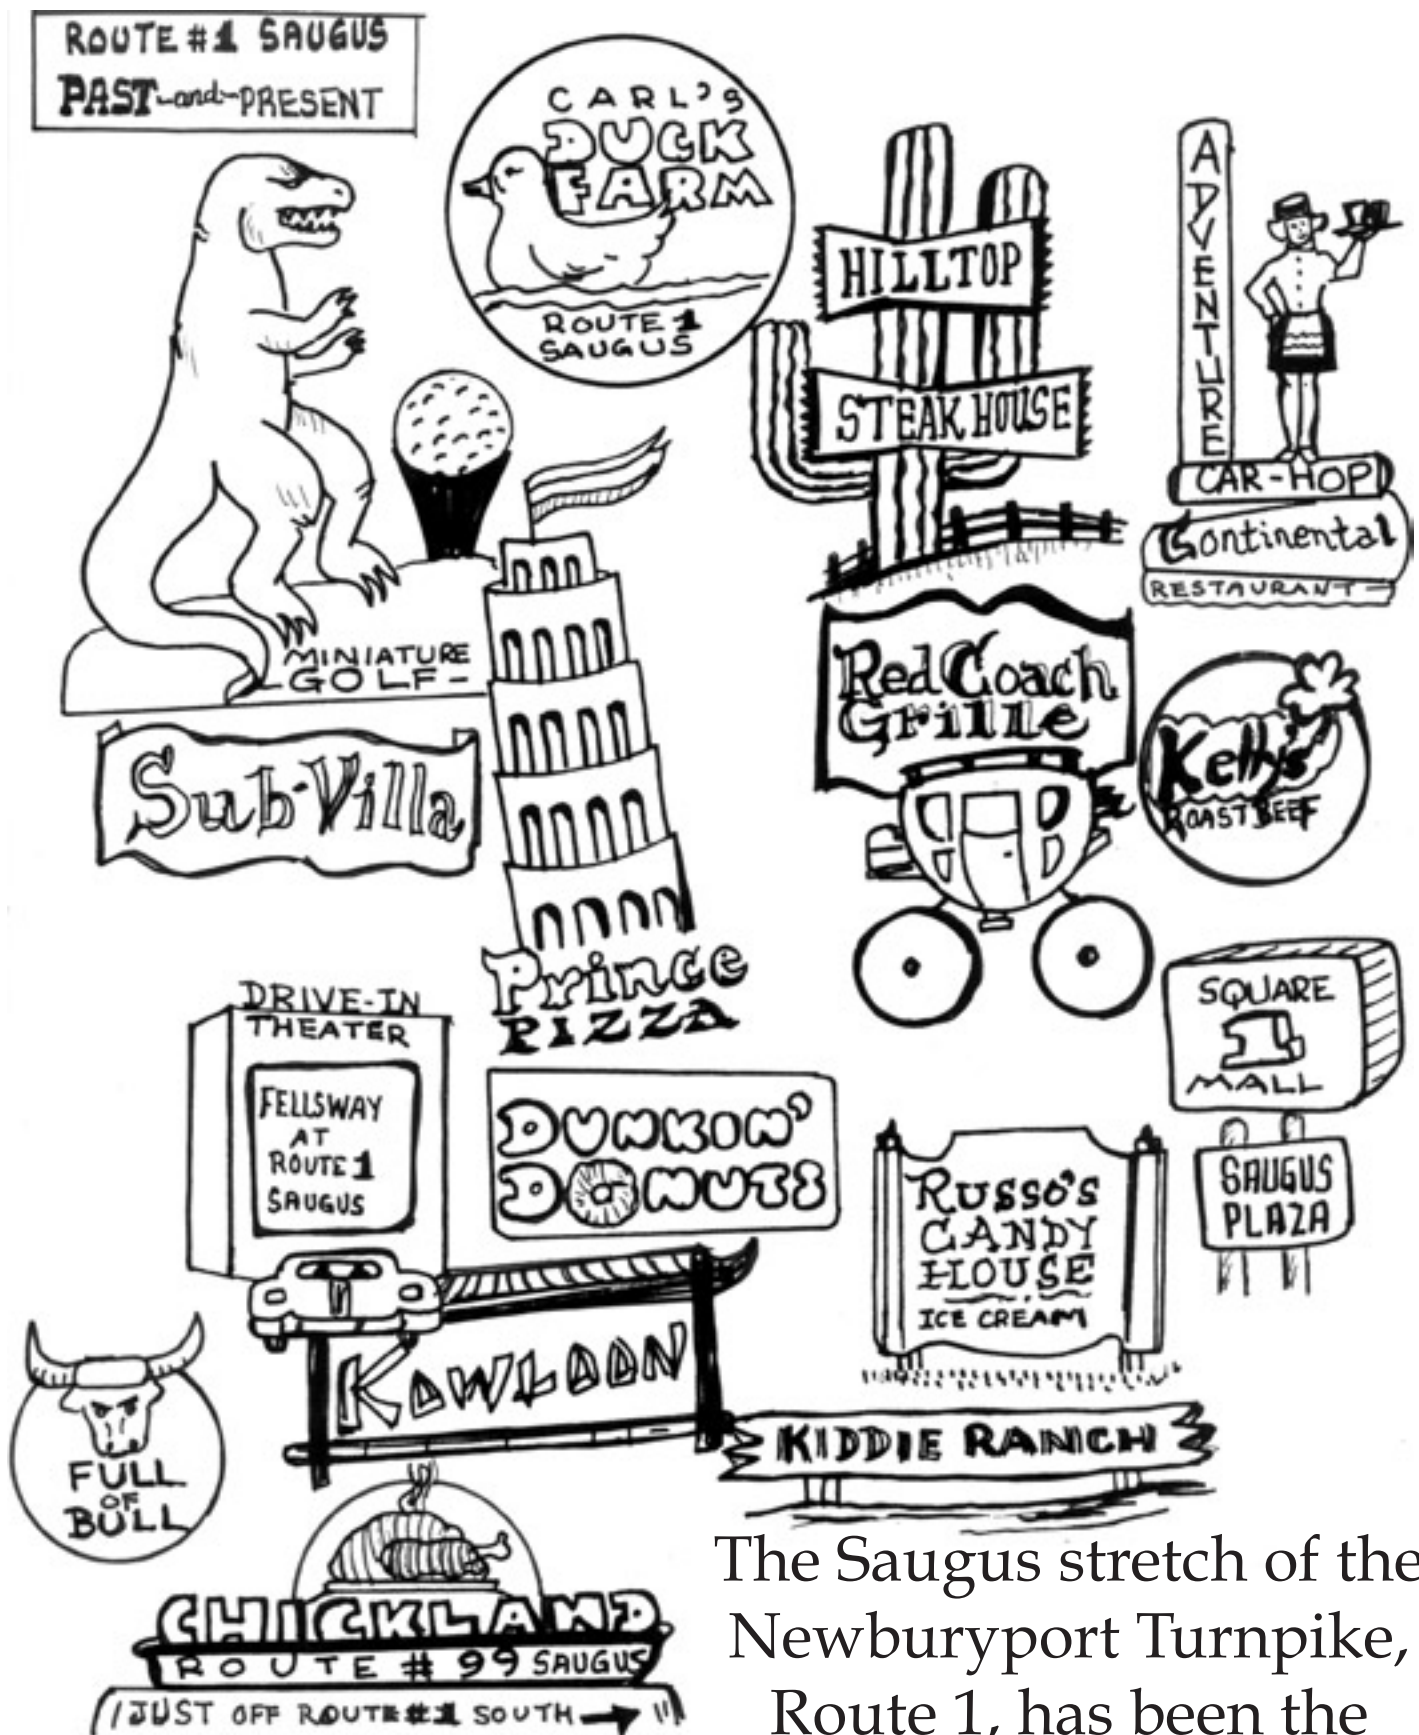 ROUTE #1 SAUGUS
PAST-and-PRESENT
CARL'S
DUCK
FARM
ROUTE 1
SAUGUS
HILLTOP
STEAK HOUSE
ADVENTURE
CAR-HOP
Continental
RESTAURANT
MINIATURE
-GOLF-
Sub-Villa
Red Coach
Grille
Kelly's
ROAST BEEF
Prince
PIZZA
SQUARE
1
MALL
SAUGUS
PLAZA
DRIVE-IN
THEATER
FELLSWAY
AT
ROUTE 1
SAUGUS
DUNKIN'
DONUTS
RUSSO'S
CANDY
HOUSE
ICE CREAM
KOWLOON
KIDDIE RANCH
FULL
OF
BULL
CHICKLAND
ROUTE # 99 SAUGUS
JUST OFF ROUTE #1 SOUTH
The Saugus stretch of the
Newburyport Turnpike,
Route 1, has been the